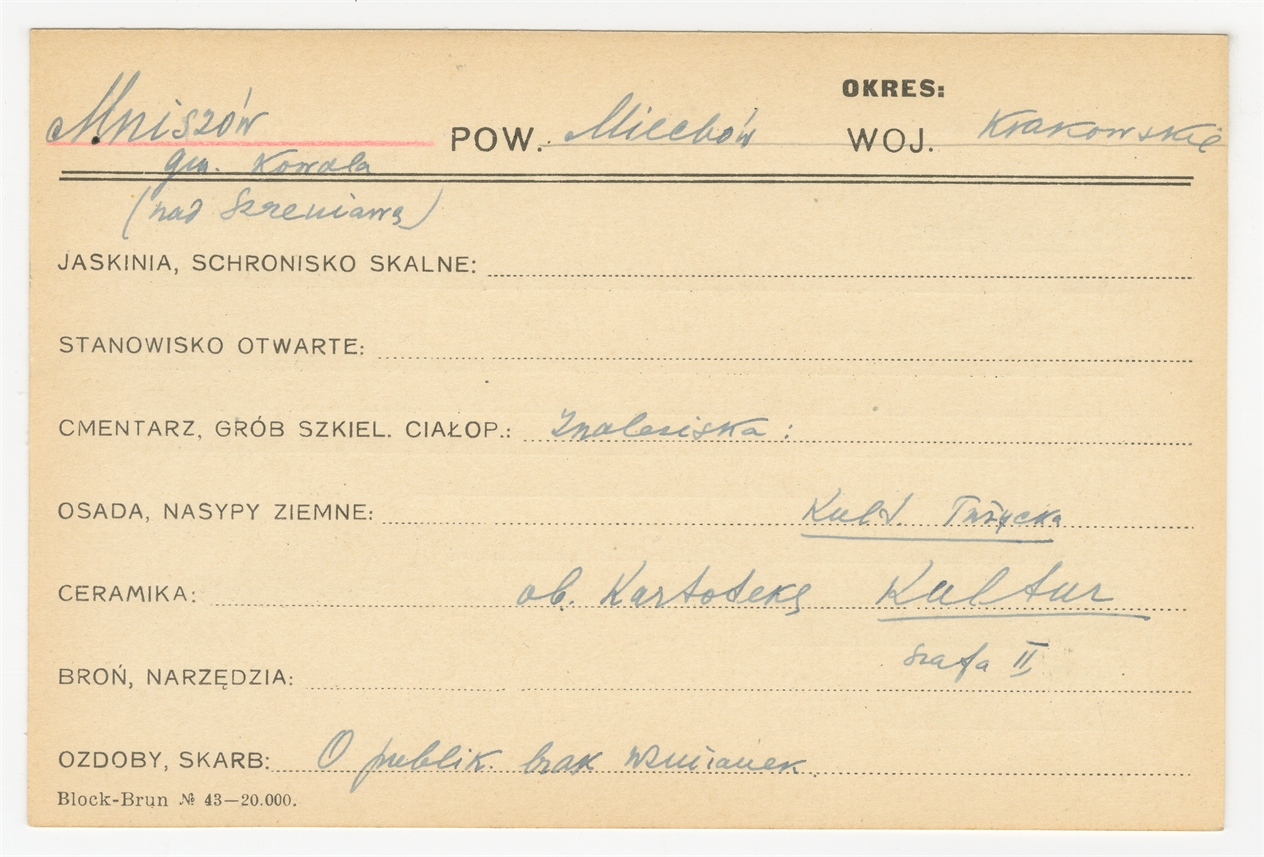 OKRES:
Mniszów POW. Miechów WOJ. Krakowskie
gm. Kowala
(nad Szreniawą)
JASKINIA, SCHRONISKO SKALNE:
STANOWISKO OTWARTE:
CMENTARZ, GRÓB SZKIEL. CIAŁOP.: Znalesiska :
OSADA, NASYPY ZIEMNE: Kult.
CERAMIKA: ob. Kartotekę Kultur
szafa II
BROŃ, NARZĘDZIA:
OZDOBY, SKARB: O publik. brak wzmianek.
Block-Brun № 43—20.000.